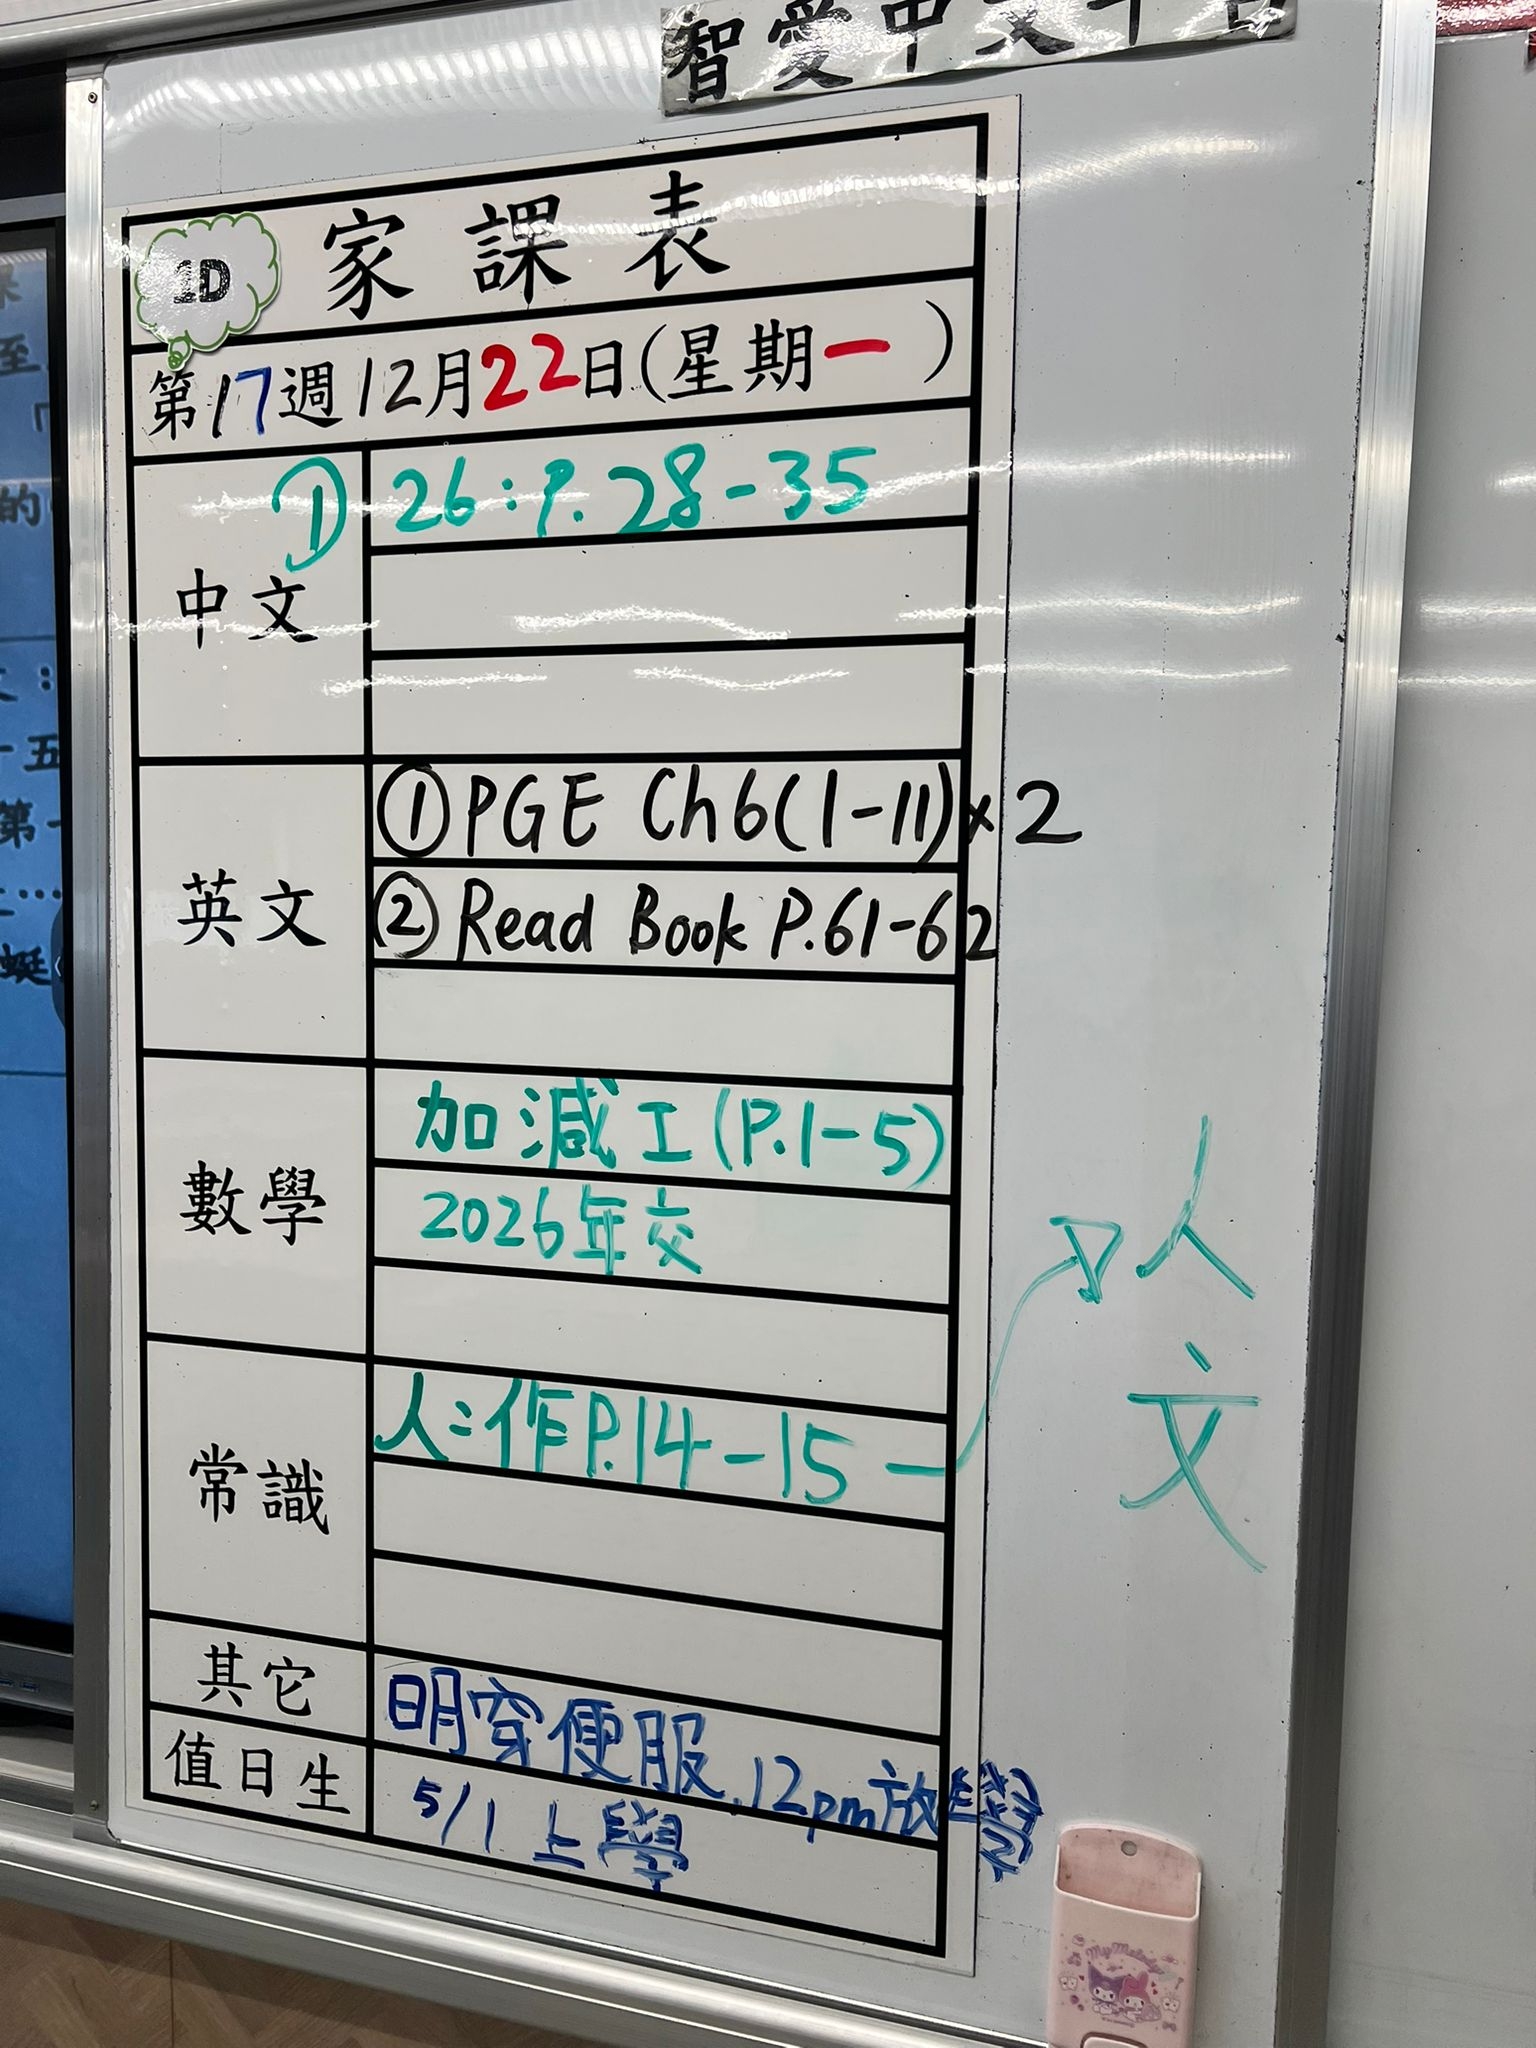 智愛中文平台
1D
家課表
第17週12月22日(星期一)
中文
① 26:P.28-35
英文
①PGE Ch6(1-11)×2
②Read Book P.61-62
數學
加減工(P.1-5)
2026年交
常識
人:作P.14-15
人文
其它
明穿便服,12pm放學
值日生
5/1上學
My Melody